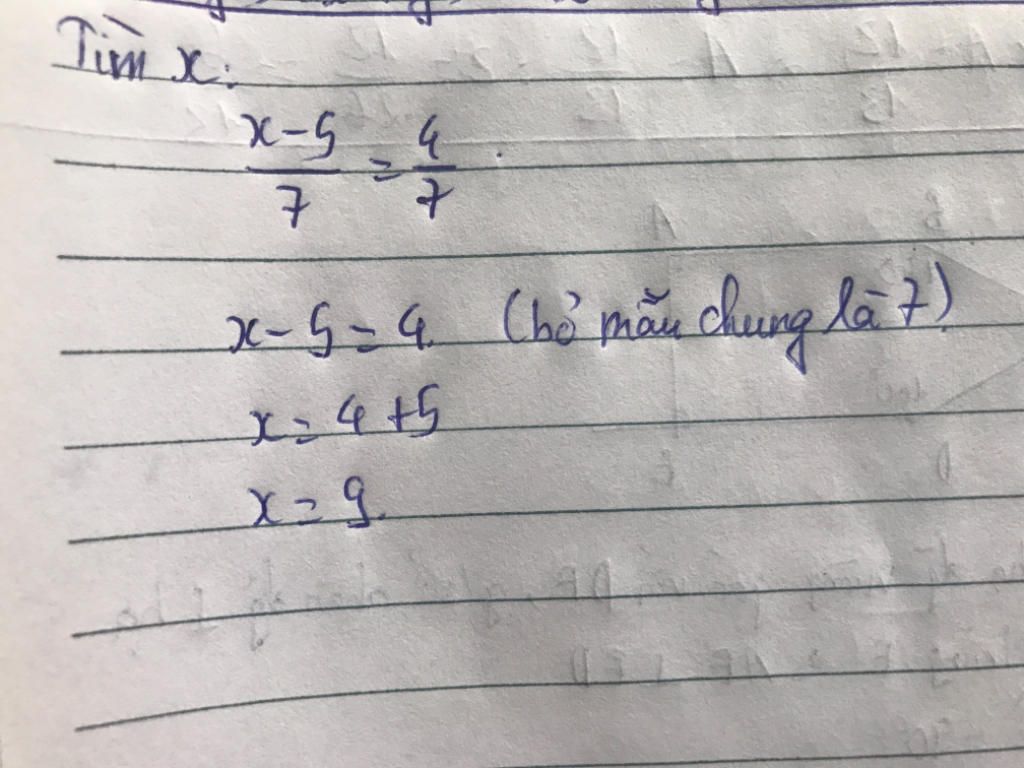 Tìm x:
x-5/7 = 4/7.
x-5 = 4. (bỏ mẫu chung là 7)
x = 4+5
x = 9.